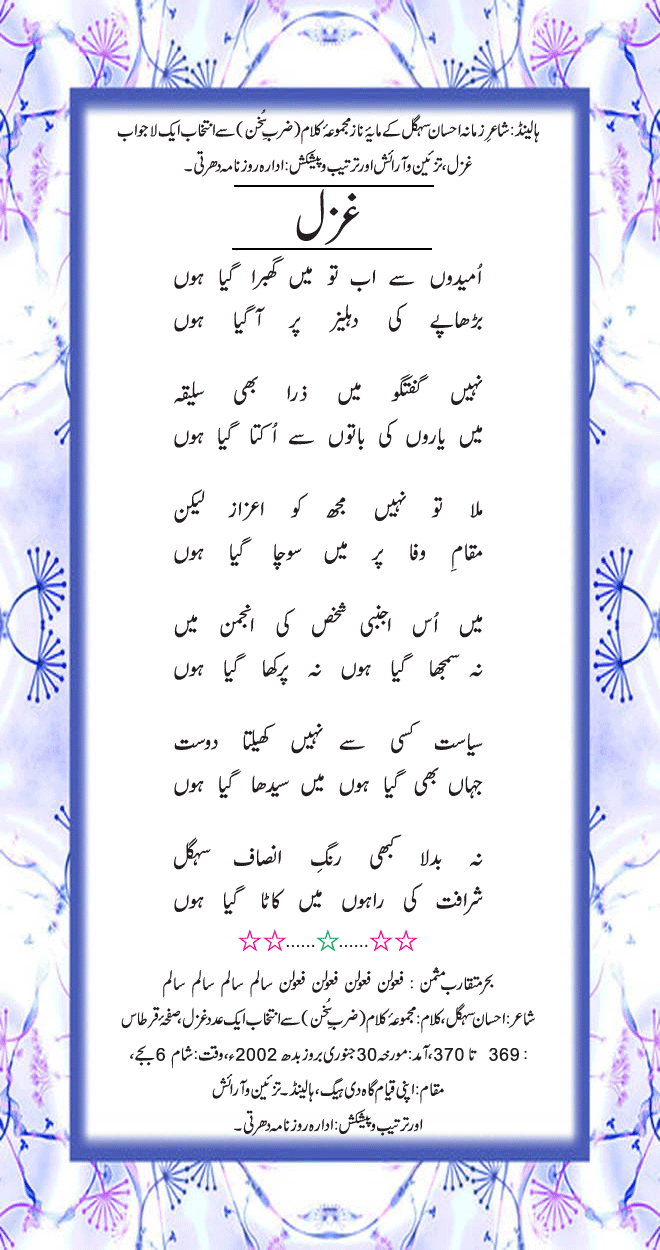 ہالینڈ: شاعرِ زمانہ احسان سہگل کے مایۂ ناز مجموعۂ کلام (ضربِ سُخن) سے انتخاب ایک لاجواب
غزل، تزئین و آرائش اور ترتیب و پیشکش: ادارہ روزنامہ دھرتی۔
غزل
اُمیدوں سے اب تو میں گھبرا گیا ہوں
بڑھاپے کی دہلیز پر آ گیا ہوں
نہیں گفتگو میں ذرا بھی سلیقہ
میں یاروں کی باتوں سے اُکتا گیا ہوں
ملا تو نہیں مجھ کو اعزاز لیکن
مقامِ وفا پر میں سوچا گیا ہوں
میں اُس اجنبی شخص کی انجمن میں
نہ سمجھا گیا ہوں نہ پرکھا گیا ہوں
سیاست کسی سے نہیں کھیلتا دوست
جہاں بھی گیا ہوں میں سیدھا گیا ہوں
نہ بدلا کبھی رنگِ انصاف سہگل
شرافت کی راہوں میں کاٹا گیا ہوں
☆☆......☆......☆☆
بحر متقارب مثمن : فعولن فعولن فعولن فعولن سالم سالم سالم سالم
شاعر: احسان سہگل، کلام: مجموعۂ کلام (ضربِ سُخن) سے انتخاب ایک عدد غزل، صفحۂ قرطاس
: 369 تا 370، آمد: مورخہ 30 جنوری بروز بدھ 2002ء، وقت: شام 6 بجے،
مقام: اپنی قیام گاہ دی ہیگ، ہالینڈ۔ تزئین و آرائش
اور ترتیب و پیشکش: ادارہ روزنامہ دھرتی۔